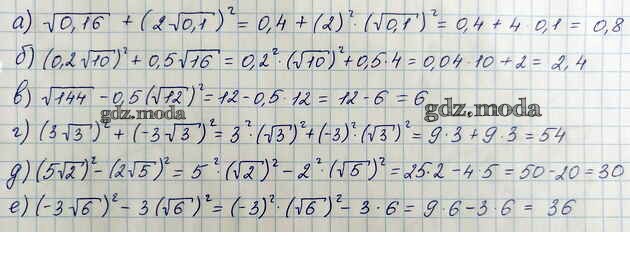 а) √0,16 + (2√0,1)² = 0,4 + (2)² · (√0,1)² = 0,4 + 4 · 0,1 = 0,8
б) (0,2√10)² + 0,5√16 = 0,2² · (√10)² + 0,5 · 4 = 0,04 · 10 + 2 = 2,4
в) √144 - 0,5(√12)² = 12 - 0,5 · 12 = 12 - 6 = 6
gdz.moda
gdz.moda
г) (3√3)² + (-3√3)² = 3² · (√3)² + (-3)² · (√3)² = 9 · 3 + 9 · 3 = 54
д) (5√2)² - (2√5)² = 5² · (√2)² - 2² · (√5)² = 25 · 2 - 4 · 5 = 50 - 20 = 30
е) (-3√6)² - 3(√6)² = (-3)² · (√6)² - 3 · 6 = 9 · 6 - 3 · 6 = 36